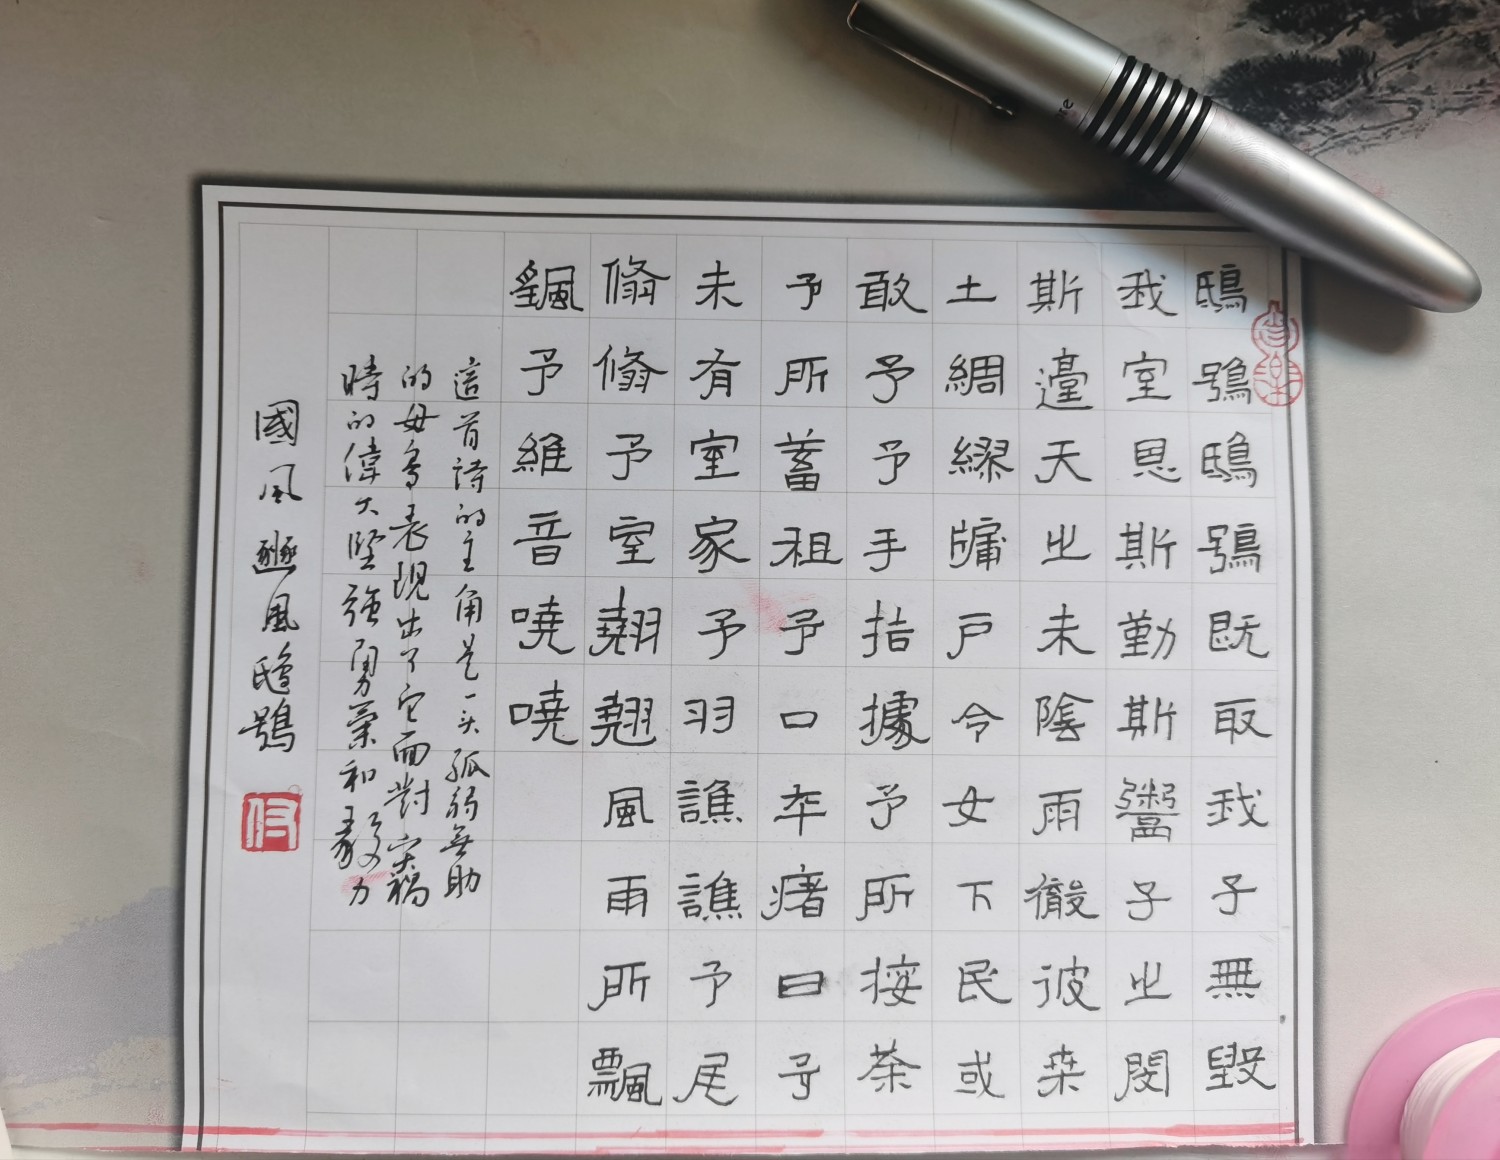 鴟鴞鴟鴞既取我子無毀
我室恩斯勤斯鬻子之閔
斯天之未陰雨徹彼桑
土綢繆牖戶今女下民或
敢予予手拮據予所捋荼
予所蓄租予口卒瘏曰予
未有室家予羽譙譙予尾
翛翛予室翹翹風雨所飄
颻予維音嘵嘵
這首詩的主角是一头孤弱無助
的母鳥表現出了它面對灾禍
時的偉大堅強勇氣和毅力
國風豳風鴟鴞